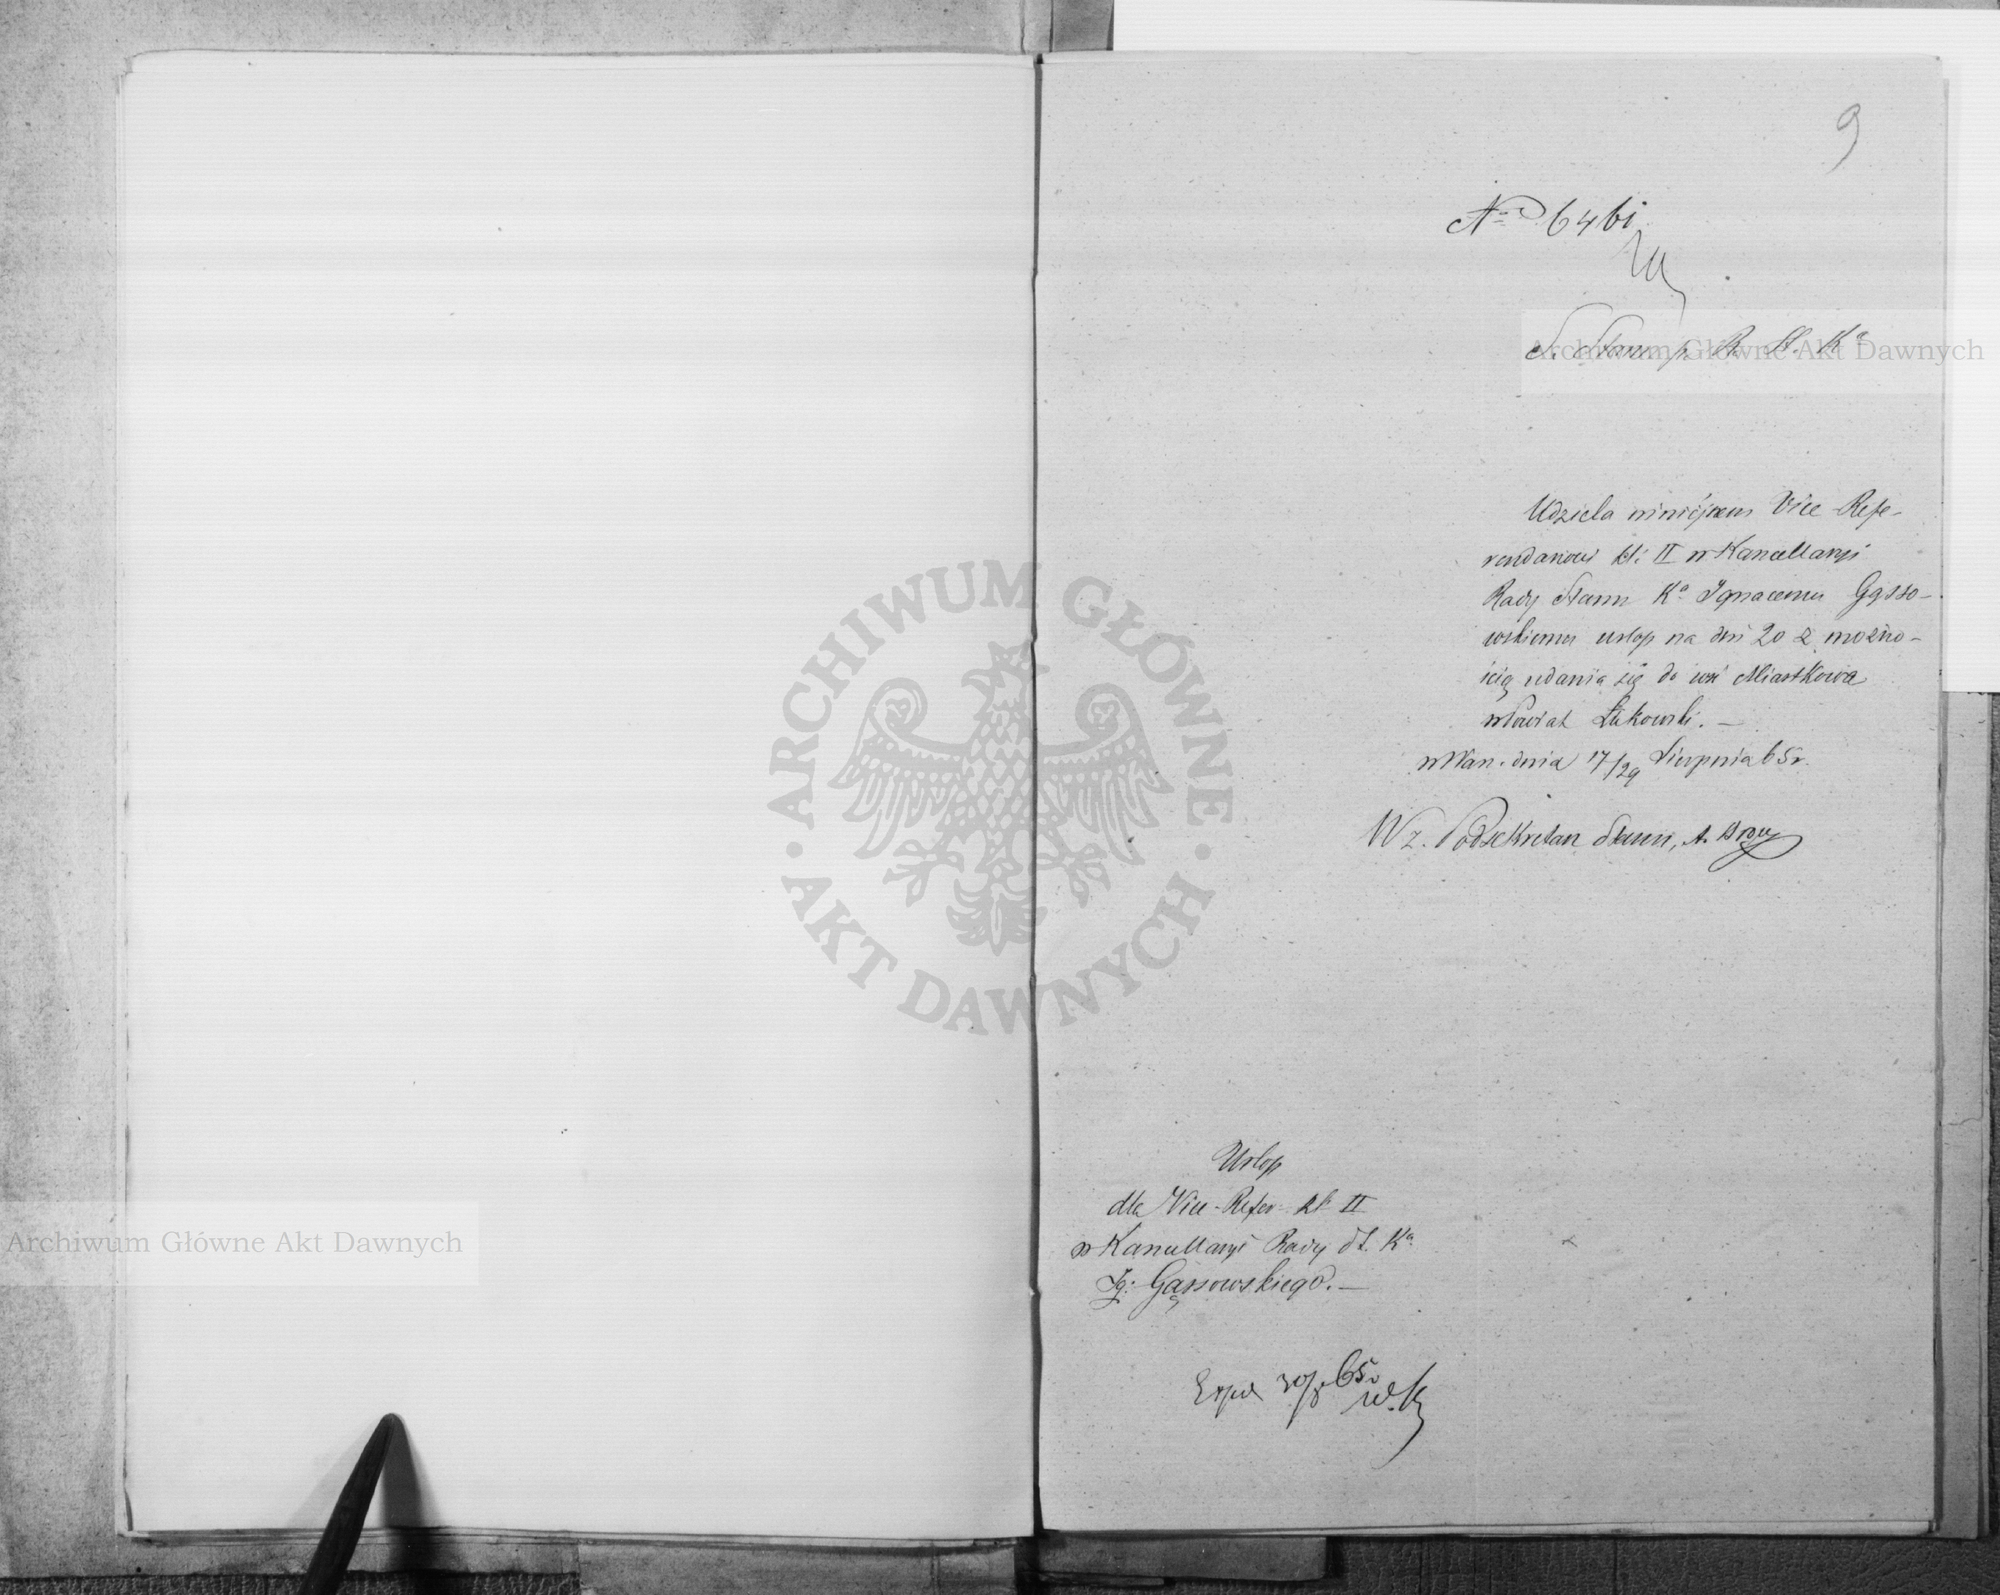 9
No 6461
S. Stanu p. R. St. Ka
Udziela niniejszem Vice-Refe-
rendarzowi kl: II w Kancellaryi
Rady Stanu Ka Ignacemu Gąsso-
wskiemu urlop na dni 20 z możno-
ścią udania się do wsi Miastkowa
w Powiat Łukowski. —
w Warsz. dnia 17/29 Sierpnia 65 r.
Wz. Podsekretarz Stanu, A.
Urlop
dla Vice-Refer. kl. II
w Kancellaryi Rady St. Ka
Ig: Gąssowskiego. —
Exped 30/8 65 r
ARCHIWUM GŁÓWNE
AKT DAWNYCH
Archiwum Główne Akt Dawnych
Archiwum Główne Akt Dawnych